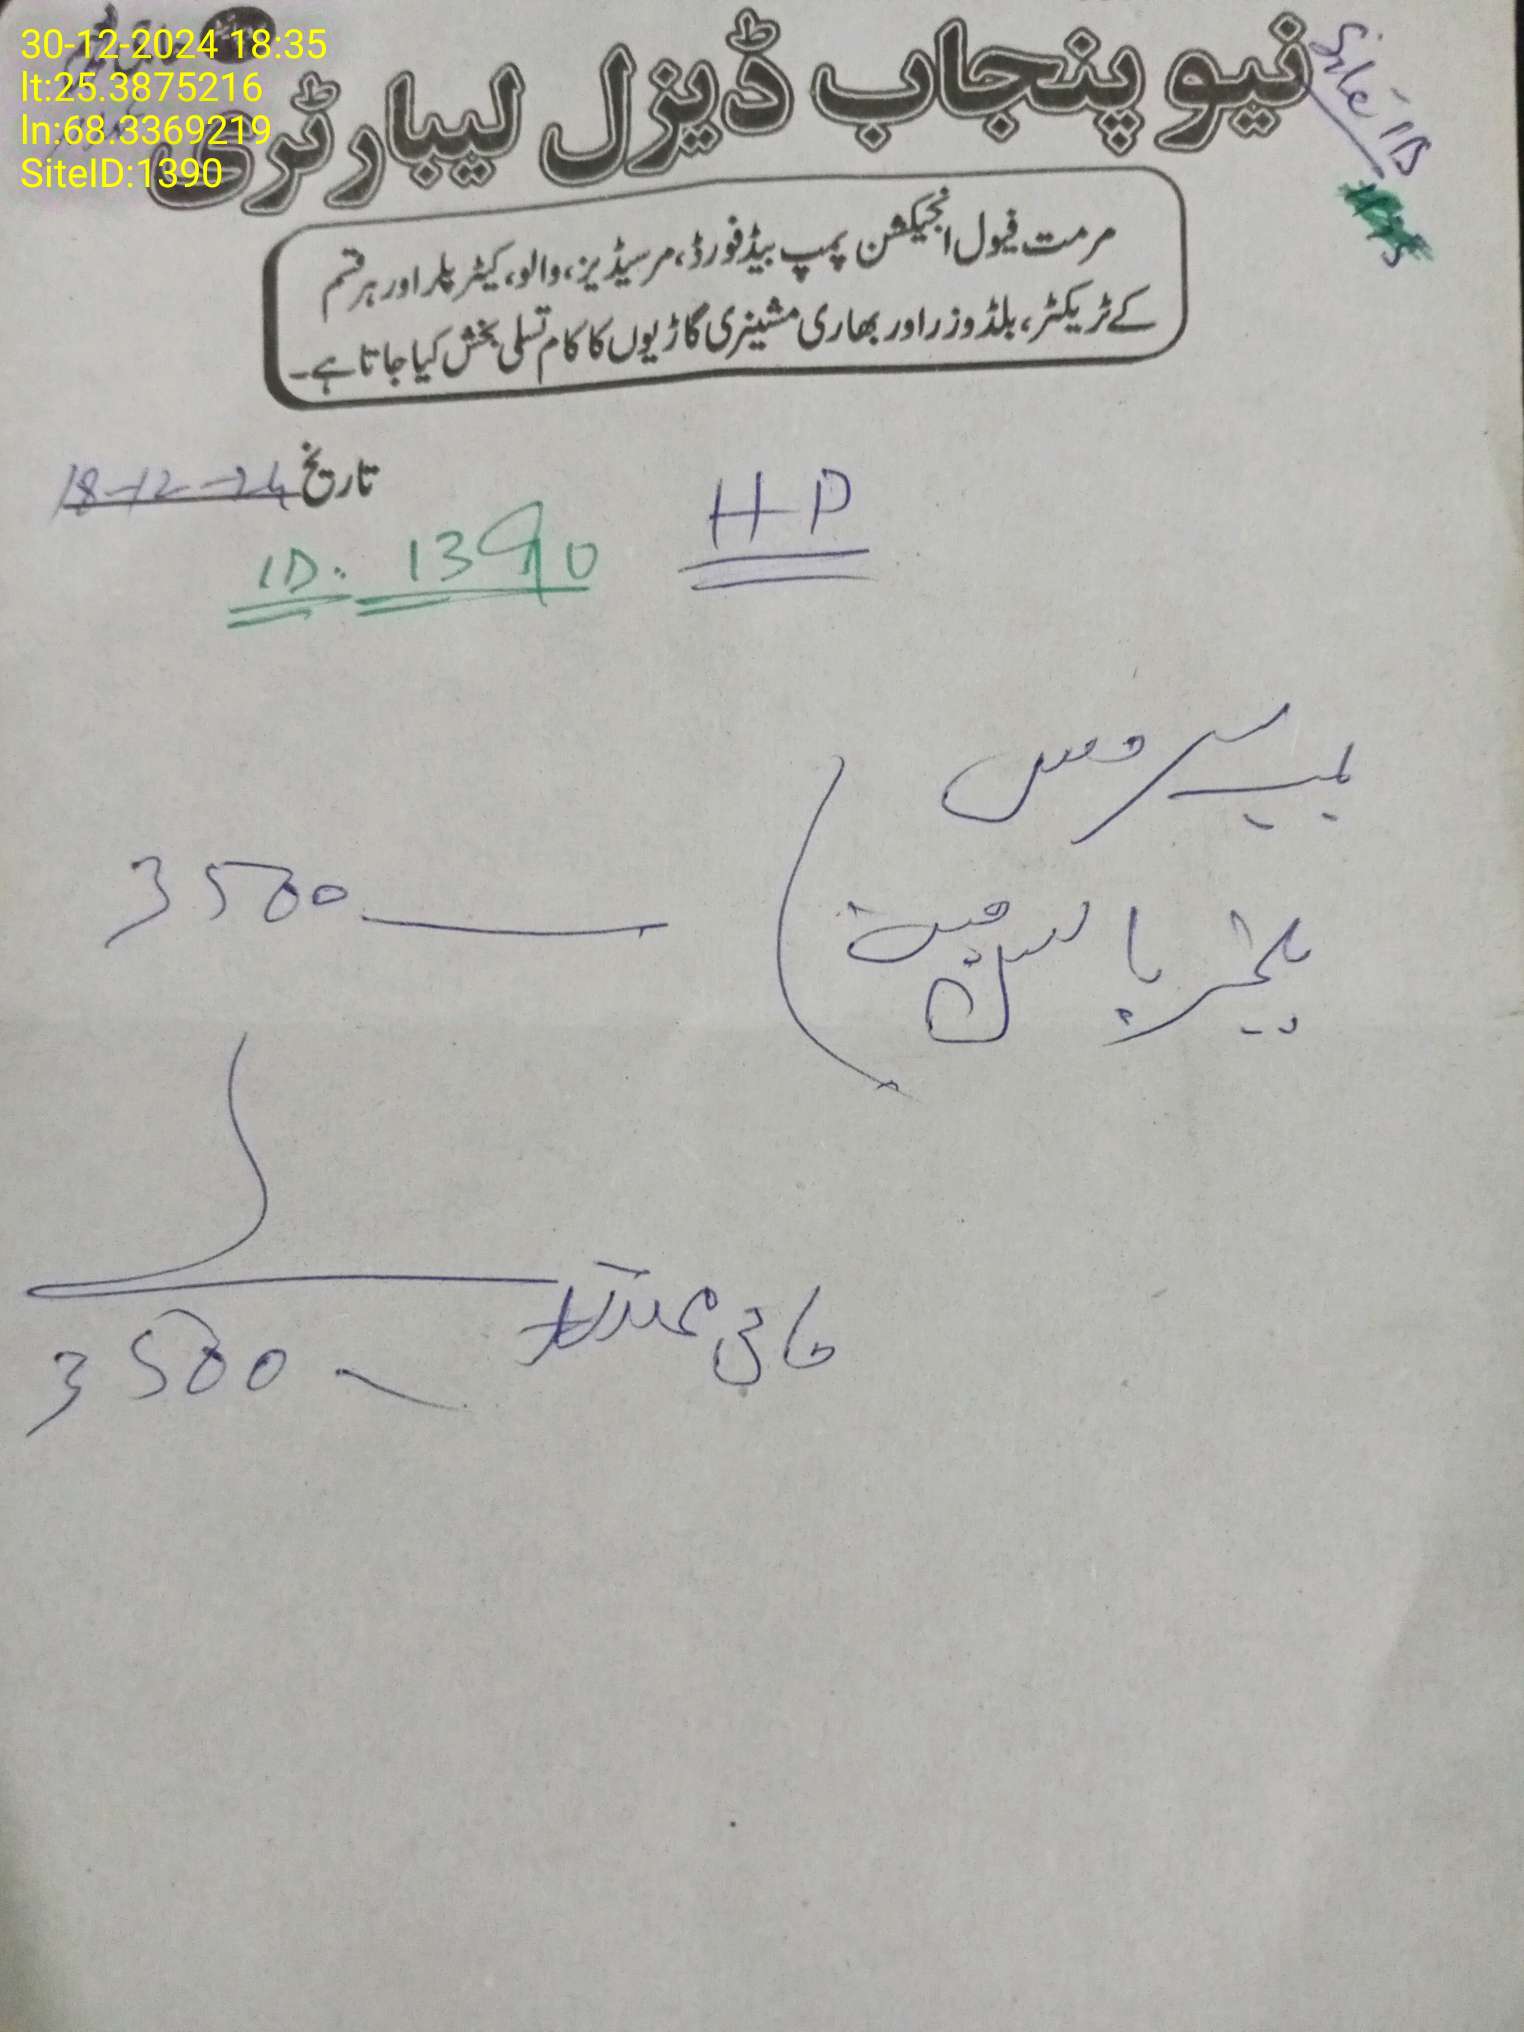 30-12-2024 18:35
lt:25.3875216
ln:68.3369219
SiteID:1390
نیو پنجاب ڈیزل لیبارٹری
Site ID
مرمت فیول انجیکشن پمپ بیڈفورڈ، مرسیڈیز، والو، کیٹرپلر اور ہر قسم
کے ٹریکٹر، بلڈوزر اور بھاری مشینری گاڑیوں کا کام تسلی بخش کیا جاتا ہے۔
تاریخ 18-12-24
HP
ID: 1390
پمپ سروس
پلنجر باسکن
3500
حاجی محمد
3500